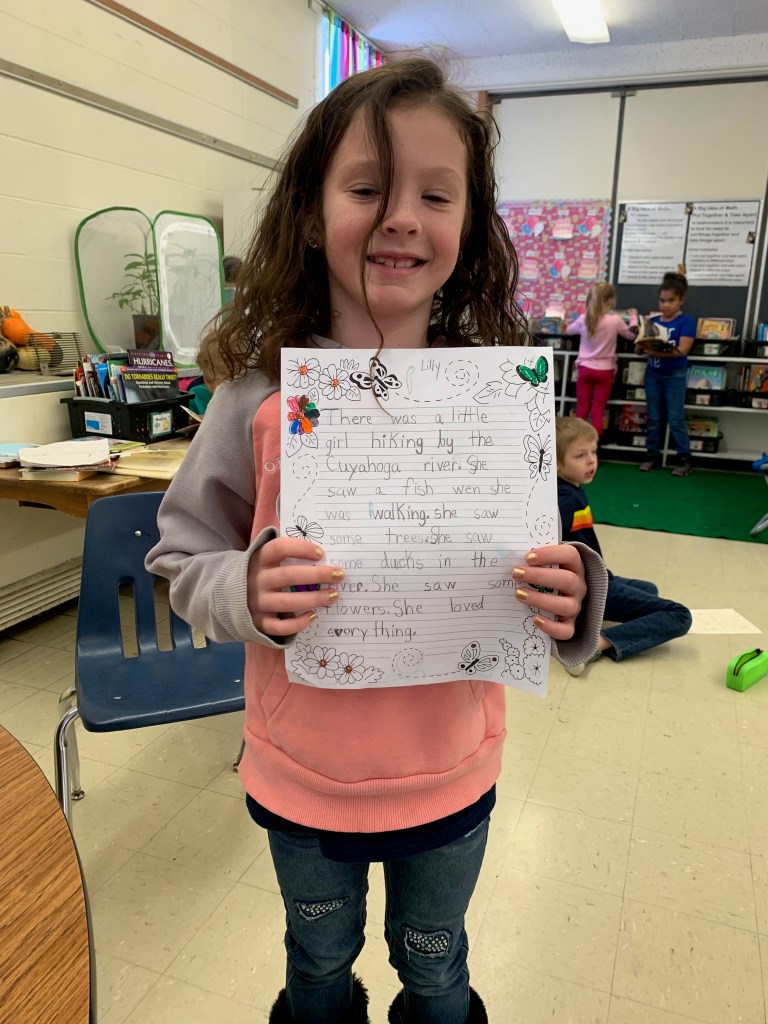 Lilly
There was a little
girl hiking by the
Cuyahoga river. She
saw a fish wen she
was walking. she saw
some trees. She saw
some ducks in the
river. She saw some
flowers. She loved
every thing.
HURRICANES
DO TORNADOES REALLY TWIST?
A Big Idea of Math...